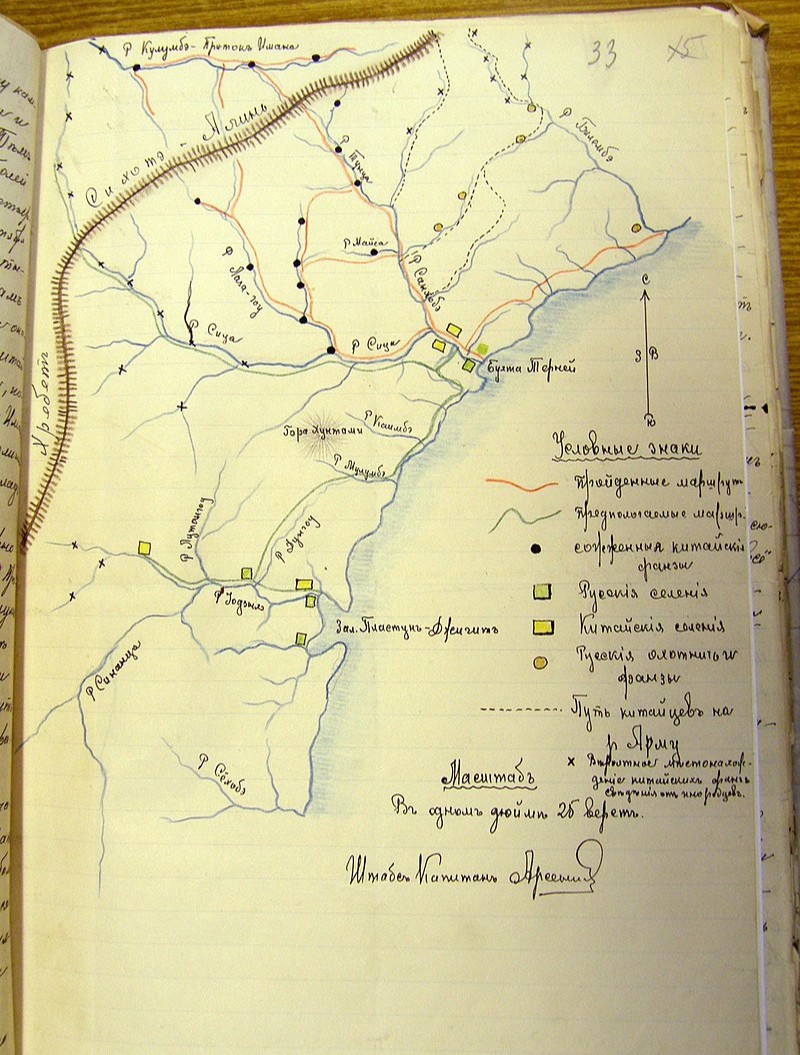 33
Р Кулумбэ-Притокъ Имана
Сихотэ Алинь
Хребетъ
Р Тунца
Р Билембэ
Р Майса
Р Санхобэ
Р Лала-гоу
Р Сица
Р Сица
Бухта Терней
Гора Хунтами
Р Каимбэ
Р Мулумбэ
Р Дунгоу
Р Іодзыхэ
Зал. Пластунъ-Джигитъ
Р Синанца
Р Сёхобэ
С
З В
Ю
Условные знаки
пройденные маршрут
предпологаемые маршр.
сожженныя китайскія
фанзы
Русскія селенія
Китайскія селенія
Русскія охотничьи
фанзы
Путь китайцевъ на
р Арму
Вероятное местонахож-
деніе китайскихъ фанзъ
сведенія отъ инородцевъ.
Масштабъ
Въ одномъ дюйме 25 верстъ.
Штабсъ Капитанъ Арсеньев